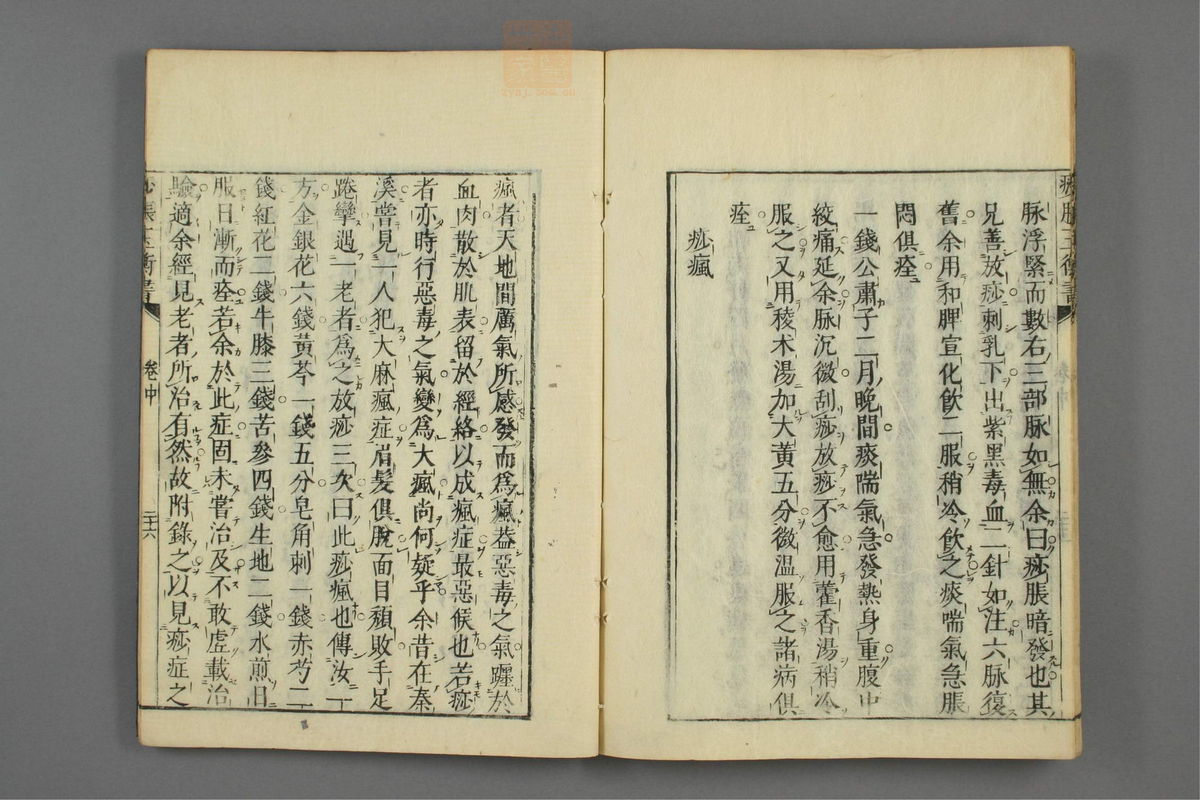 脉浮緊而數右三部脉如無余曰痧脹暗發也其
兄善放痧刺乳下出紫黑毒血二針如注六脉復
舊余用和脾宣化飲二服稍冷飲之痰喘氣急脹
悶俱痊
一錢公肅子二月晚間痰喘氣急發熱身重腹中
絞痛延余脉沉微刮痧放痧不愈用藿香湯稍冷
服之又用稜术湯加大黃五分微温服之諸病俱
痊
痧瘋
瘋者天地間厲氣所感發而爲瘋葢惡毒之氣躔於
血肉散於肌表留於經絡以成瘋症最惡候也若痧
者亦時行惡毒之氣變爲大瘋尚何疑乎余昔在秦
溪嘗見一人犯大麻瘋症眉髮俱脫面目頹敗手足
踡攣遇一老者爲之放痧三次曰此痧瘋也傳汝一
方金銀花六錢黃芩一錢五分皂角刺一錢赤芍二
錢紅花二錢牛膝三錢苦參四錢生地二錢水煎日
服日漸而痊若余於此症固未嘗治及不敢虛載治
驗適余經見老者所治有然故附錄之以見痧症之
痧脹玉衡書
卷中
二十六